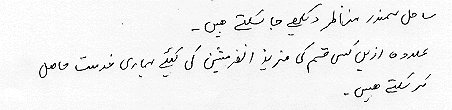 ساحل سمندر مناظر دیکھے جا سکتے ہیں۔
علاوہ ازیں کسی قسم کی مزید انفرمیشن کی لیئے ہماری خدمت حاصل
کر سکتے ہیں۔